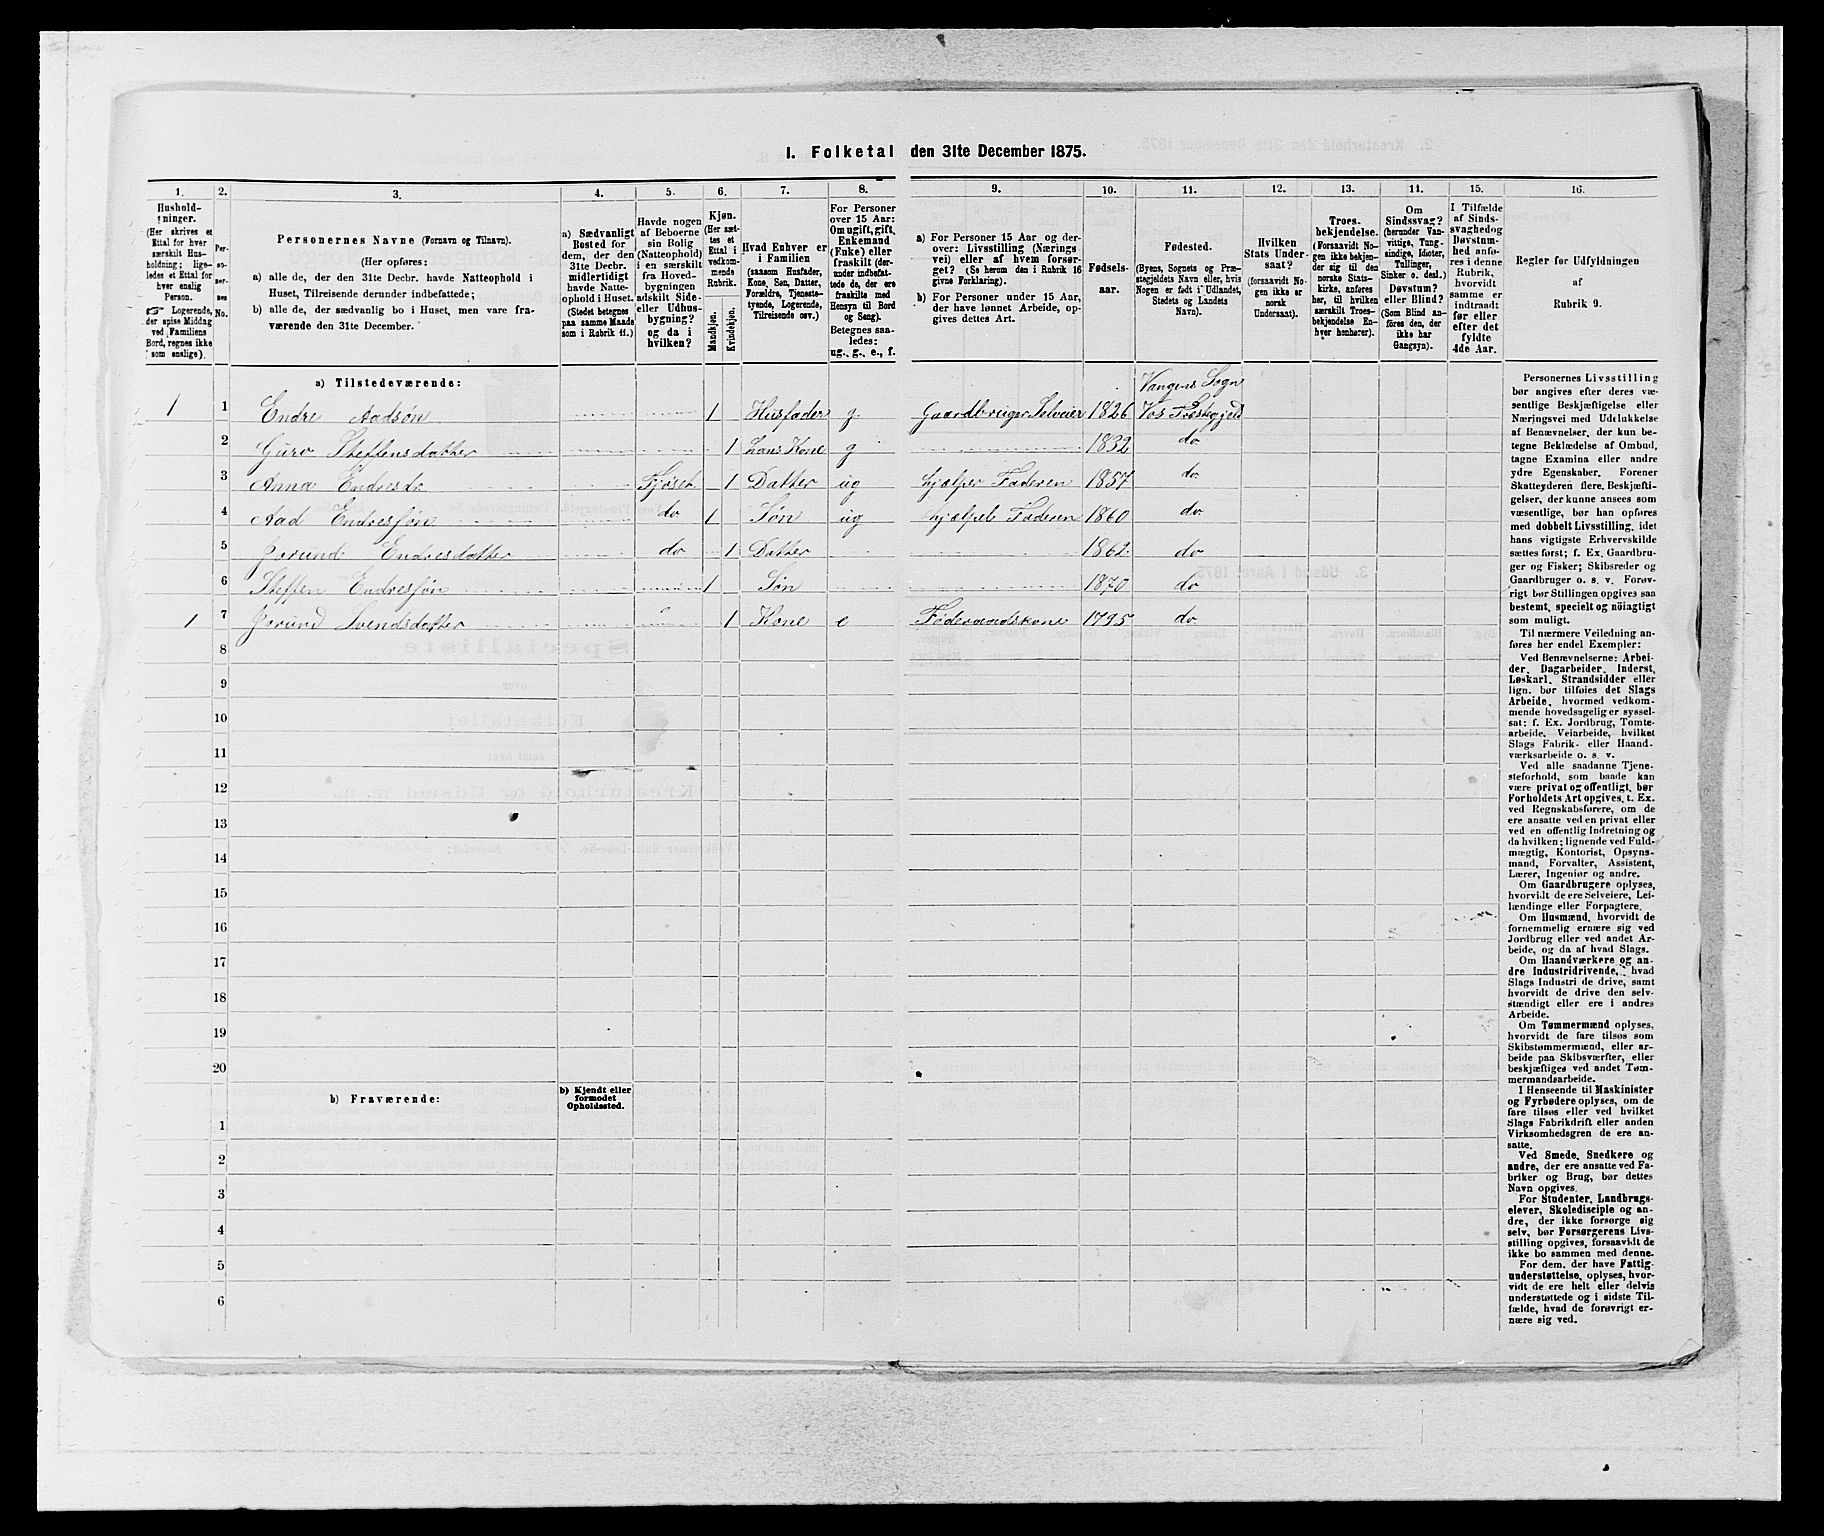 1. Folketal den 31te December 1875.
1.
Hushold-
ninger.
(Her skrives et
Ettal for hver
særskilt Hus-
holdning; lige-
ledes et Ettal for
hver enslig
Person.
Logerende,
der spise Middag
ved Familiens
Bord, regnes ikke
som enslige).
2.
Per-
so-
ner-
nes
No.
3.
Personernes Navne (Fornavn og Tilnavn).
(Her opføres:
a) alle de, der den 31te Decbr. havde Natteophold i
Huset, Tilreisende derunder indbefattede;
b) alle de, der sædvanlig bo i Huset, men vare fra-
værende den 31te December.
4.
a) Sædvanligt
Bosted for
dem, der den
31te Decbr.
midlertidigt
havde Natte-
ophold i Huset.
(Stedet betegnes
paa samme Maade
som i Rubrik 11.)
5.
Havde nogen
af Beboerne
sin Bolig
(Natteophold)
i en særskilt
fra Hoved-
bygningen
adskilt Side-
eller Udhus-
bygning?
og da i
hvilken?
6.
Kjøn.
(Her sæt-
tes et
Ettal i
vedkom-
mende
Rubrik.
Mandkjøn.
Kvindekjøn.
7.
Hvad Enhver er
i Familien
(saasom Husfader,
Kone, Søn, Datter,
Forældre, Tjeneste-
tyende, Logerende,
Tilreisende osv.)
8.
For Personer
over 15 Aar:
Om ugift, gift,
Enkemand
(Enke) eller
fraskilt (der-
under indbefat-
tede de, der ere
fraskilte med
Hensyn til Bord
og Seng).
Betegnes saa-
ledes:
ug., g., e., f.
9.
a) For Personer 15 Aar og der-
over: Livsstilling (Nærings
vei) eller af hvem forsør-
get? (Se herom den i Rubrik 16
givne Forklaring).
b) For Personer under 15 Aar,
der have lønnet Arbeide, op-
gives dettes Art.
10.
Fødsels-
aar.
11.
Fødested.
(Byens, Sognets og Præ-
stegjeldets Navn eller, hvis
Nogen er født i Udlandet,
Stedets og Landets
Navn).
12.
Hvilken
Stats Under-
saat?
(forsaavidt No-
gen ikke er
norsk
Undersaat).
13.
Troes-
bekjendelse.
(Forsaavidt No-
gen ikke bekjen-
der sig til den
norske Stats-
kirke, anføres
her, til hvilken
særskilt Troes-
bekjendelse En-
hver henhører).
14.
Om
Sindssvag?
(herunder Van-
vittige, Tung-
sindige, Idioter,
Tullinger,
Sinker o. desl.)
Døvstum?
eller Blind?
(Som Blind an-
føres den, der
ikke har
Gangsyn).
15.
I Tilfælde
af Sinds-
svaghed og
Døvstum-
hed anfø-
res i denne
Rubrik,
hvorvidt
samme er
indtraadt
før eller
efter det
fyldte
4de Aar.
16.
Regler for Udfyldningen
af
Rubrik 9.
a) Tilstedeværende:
Vangens Sogn
1 1 Endre Aadsøn 1 Husfader g. Gaardbruger Selveier 1826 Vos Præstegjeld
2 Guro Steffensdatter 1 hans Kone g 1832 do
3 Anna Endresdr 1 Datter ug hjælper Faderen 1857 do
4 Aad Endresføn do 1 Søn ug hjælper Faderen 1860 do
5 Jorund Endresdatter do 1 Datter 1862 do
6 Steffen Endresføn 1 Søn 1870 do
1 7 Jorund Svendsdatter 1 Kone e Føderaadskone 1795 do
8
9
10
11
12
13
14
15
16
17
18
19
20
b) Fraværende:
b) Kjendt eller
formodet
Opholdssted.
1
2
3
4
5
6
Personernes Livsstilling
bør angives efter deres væ-
sentlige Beskjæftigelse eller
Næringsvei med Udelukkelse
af Benævnelser, der kun be-
tegne Beklædelse af Ombud,
tagne Examina eller andre
ydre Egenskaber. Forener
Skatteyderen flere. Beskjæfti-
gelser, der kunne ansees som
væsentlige, bør han opføres
med dobbelt Livsstilling, idet
hans vigtigste Erhvervskilde
sættes først; f. Ex. Gaardbru-
ger og Fisker; Skibsreder og
Gaardbruger o. s. v. Forøv-
rigt bør Stillingen opgives saa
bestemt, specielt og nöiagtigt
som muligt.
Til nærmere Veiledning an-
føres her endel Exempler:
Ved Benævnelserne: Arbei-
der, Dagarbeider, Inderst,
Løskarl, Strandsidder eller
lign. bør tilføies det Slags
Arbeide, hvormed vedkom-
mende hovedsagelig er syssel-
sat; f. Ex. Jordbrug, Tomte-
arbeide, Veiarbeide, hvilket
Slags Fabrik- eller Haand-
værksarbeide o. s. v.
Ved alle saadanne Tjene-
steforhold, som baade kan
være privat og offentligt, bør
Forholdets Art opgives, t. Ex.
ved Regnskabsførere, om de
ere ansatte ved en privat eller
ved en offentlig Indretning og
da hvilken; lignende ved Fuld-
mægtig, Kontorist, Opsyns-
mand, Forvalter, Assistent,
Lærer, Ingeniør og andre.
Om Gaardbrugere oplyses,
hvorvidt de ere Selveiere, Lei-
lændinge eller Forpagtere.
Om Husmænd, hvorvidt de
fornemmelig ernære sig ved
Jordbrug eller ved andet Ar-
beide, og da af hvad Slags.
Om Haandværkere og an-
dre Industridrivende, hvad
Slags Industri de drive, samt
hvorvidt de drive den selv-
stændigt eller ere i andres
Arbeide.
Om Tømmermænd oplyses,
hvorvidt de fare tilsøs som
Skibstømmermænd, eller ar-
beide paa Skibsværfter, eller
beskjæftiges ved andet Tøm-
mermandsarbeide.
I Henseende til Maskinister
og Fyrbødere oplyses, om de
fare tilsøs eller ved hvilket
Slags Fabrikdrift eller anden
Virksomhedsgren de ere an-
satte.
Ved Smede, Snedkere og
andre, der ere ansatte ved Fa-
briker og Brug, bør dettes
Navn opgives.
For Studenter, Landbrugs-
elever, Skoledisciple og an-
dre, der ikke forsørge sig
selv, bør Forsørgerens Livs-
stilling opgives, forsaavidt de
ikke bo sammen med denne.
For dem, der have Fattig-
understøttelse, oplyses, hvor-
vidt de ere helt eller delvis
understøttede og i sidste Til-
fælde, hvad de forøvrigt er-
nære sig ved.